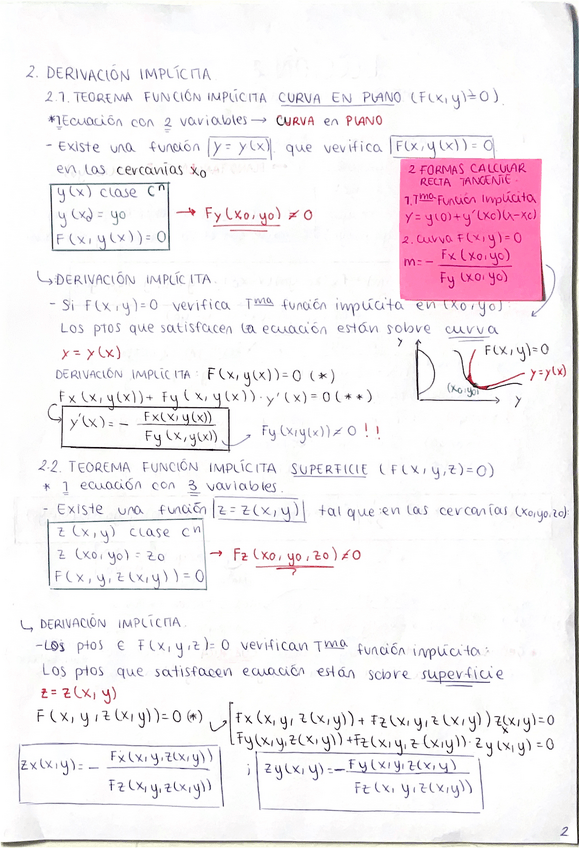 2. DERIVACIÓN IMPLÍCITA
2.1. TEOREMA FUNCIÓN IMPLÍCITA CURVA EN PLANO (F(x,y)=0).
*1Ecuación con 2 variables → CURVA en PLANO
- Existe una función y = y(x) que verifica F(x,y(x)) = 0
en las cercanías x₀
y(x) clase Cⁿ
y(x₀) = y₀
F(x,y(x)) = 0
→ Fy(x₀,y₀) ≠ 0
2 FORMAS CALCULAR
RECTA TANGENTE.
1. Tᵐᵃ Función Implícita
y = y(0) + y'(x₀)(x-x₀)
2. Curva F(x,y)=0
m = - Fx(x₀,y₀) / Fy(x₀,y₀)
↳ DERIVACIÓN IMPLÍCITA
- Si F(x,y)=0 verifica Tᵐᵃ función implícita en (x₀,y₀):
Los ptos que satisfacen la ecuación están sobre curva
y = y(x)
DERIVACIÓN IMPLÍCITA: F(x,y(x))=0 (*)
Fx(x,y(x)) + Fy(x,y(x))·y'(x)=0 (**)
y'(x) = - Fx(x,y(x)) / Fy(x,y(x))
Fy(x,y(x)) ≠ 0 !!
y
F(x,y)=0
y=y(x)
(x₀,y₀)
y
2.2. TEOREMA FUNCIÓN IMPLÍCITA SUPERFICIE (F(x,y,z)=0)
* 1 ecuación con 3 variables.
- Existe una función z = z(x,y) tal que en las cercanías (x₀,y₀,z₀):
z(x,y) clase Cⁿ
z(x₀,y₀) = z₀
F(x,y,z(x,y)) = 0
→ Fz(x₀,y₀,z₀) ≠ 0
?
↳ DERIVACIÓN IMPLÍCITA.
- Los ptos ∈ F(x,y,z)=0 verifican Tᵐᵃ función implícita:
Los ptos que satisfacen ecuación están sobre superficie
z = z(x,y)
F(x,y,z(x,y))=0 (*)
Fx(x,y,z(x,y)) + Fz(x,y,z(x,y)) zx(x,y)=0
Fy(x,y,z(x,y)) + Fz(x,y,z(x,y))·zy(x,y)=0
zx(x,y) = - Fx(x,y,z(x,y)) / Fz(x,y,z(x,y)) ; zy(x,y) = - Fy(x,y,z(x,y)) / Fz(x,y,z(x,y))
2